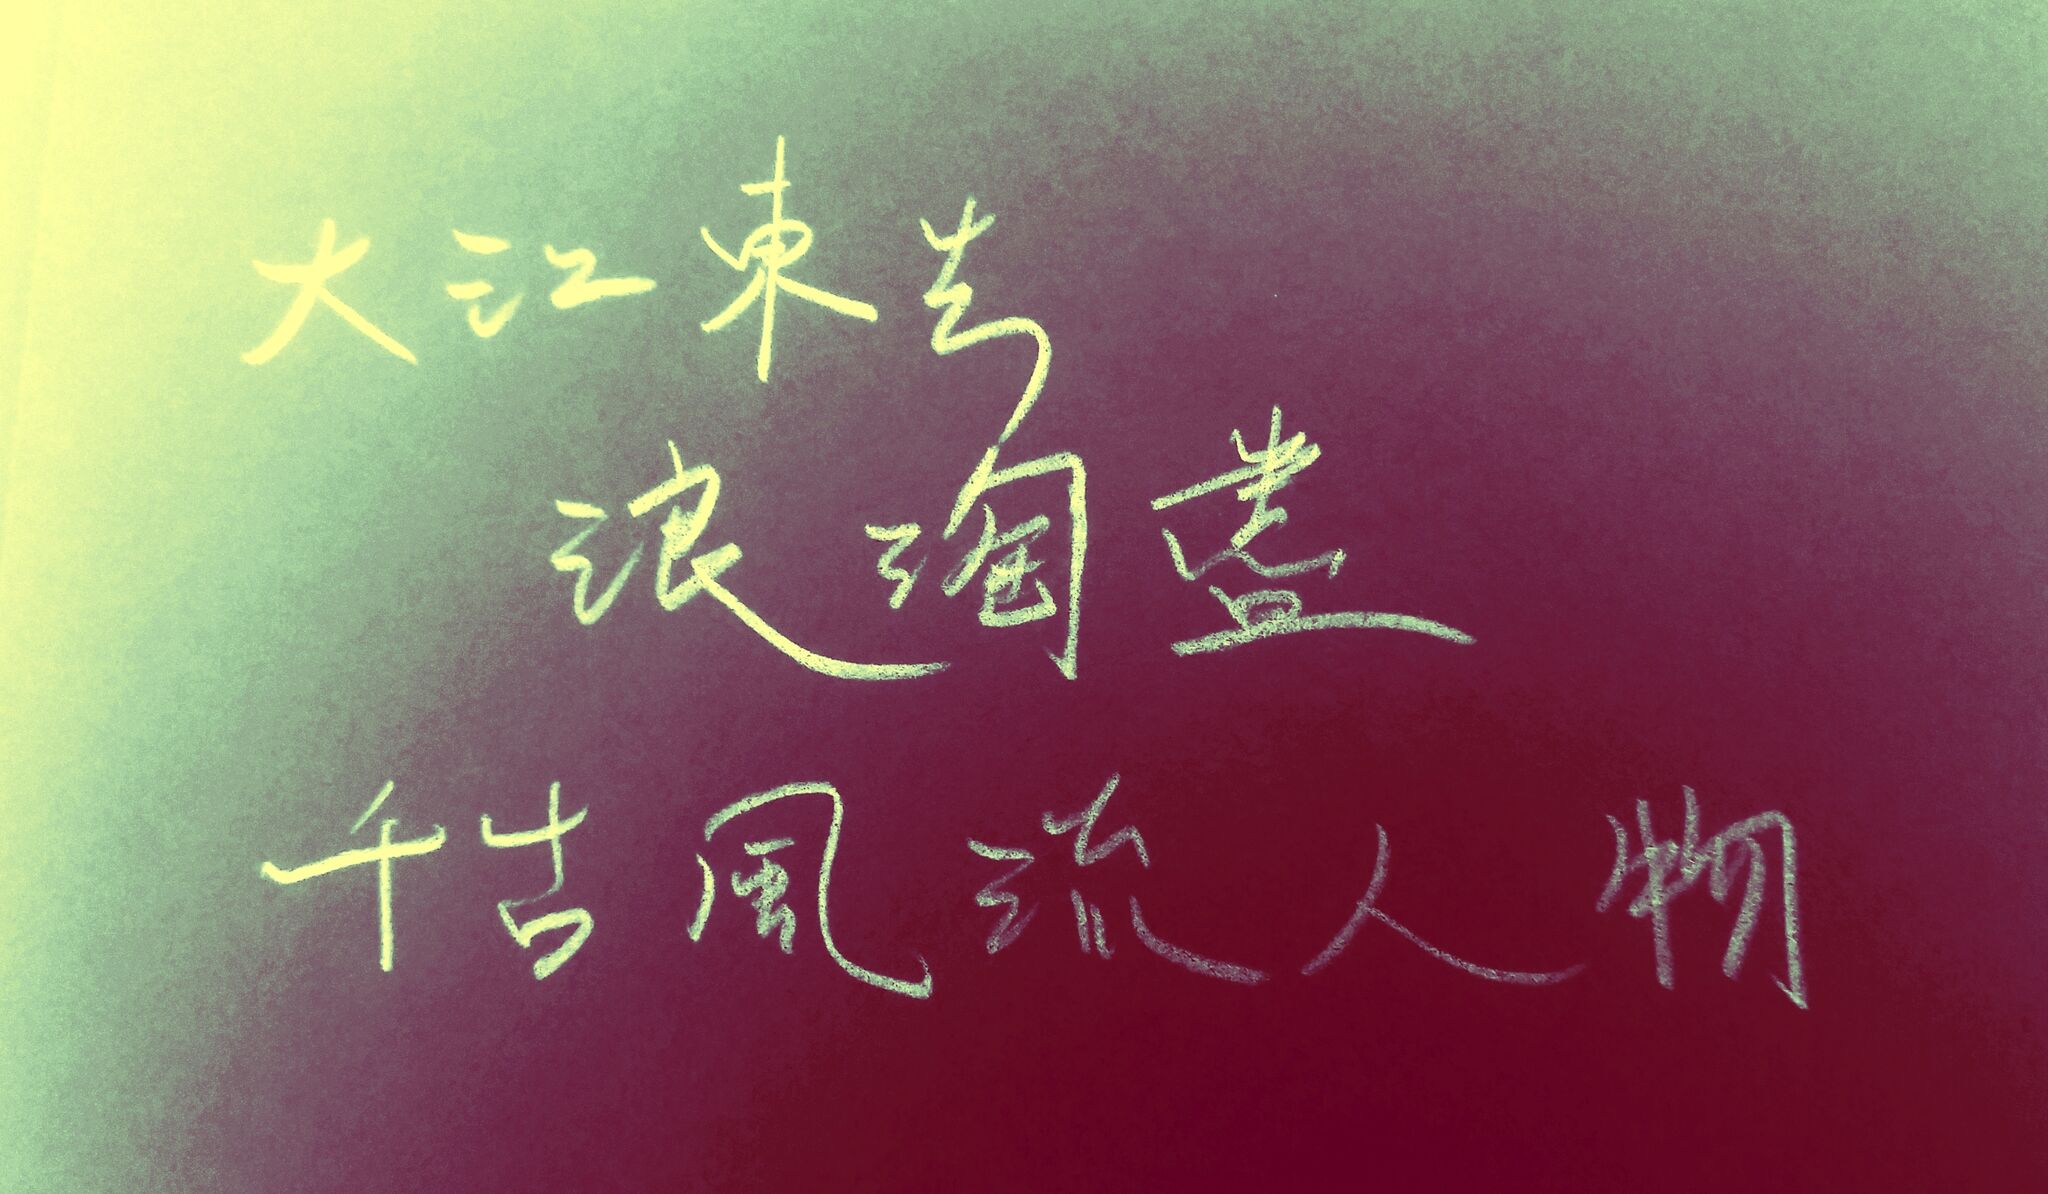 大江東去
浪淘盡
千古風流人物